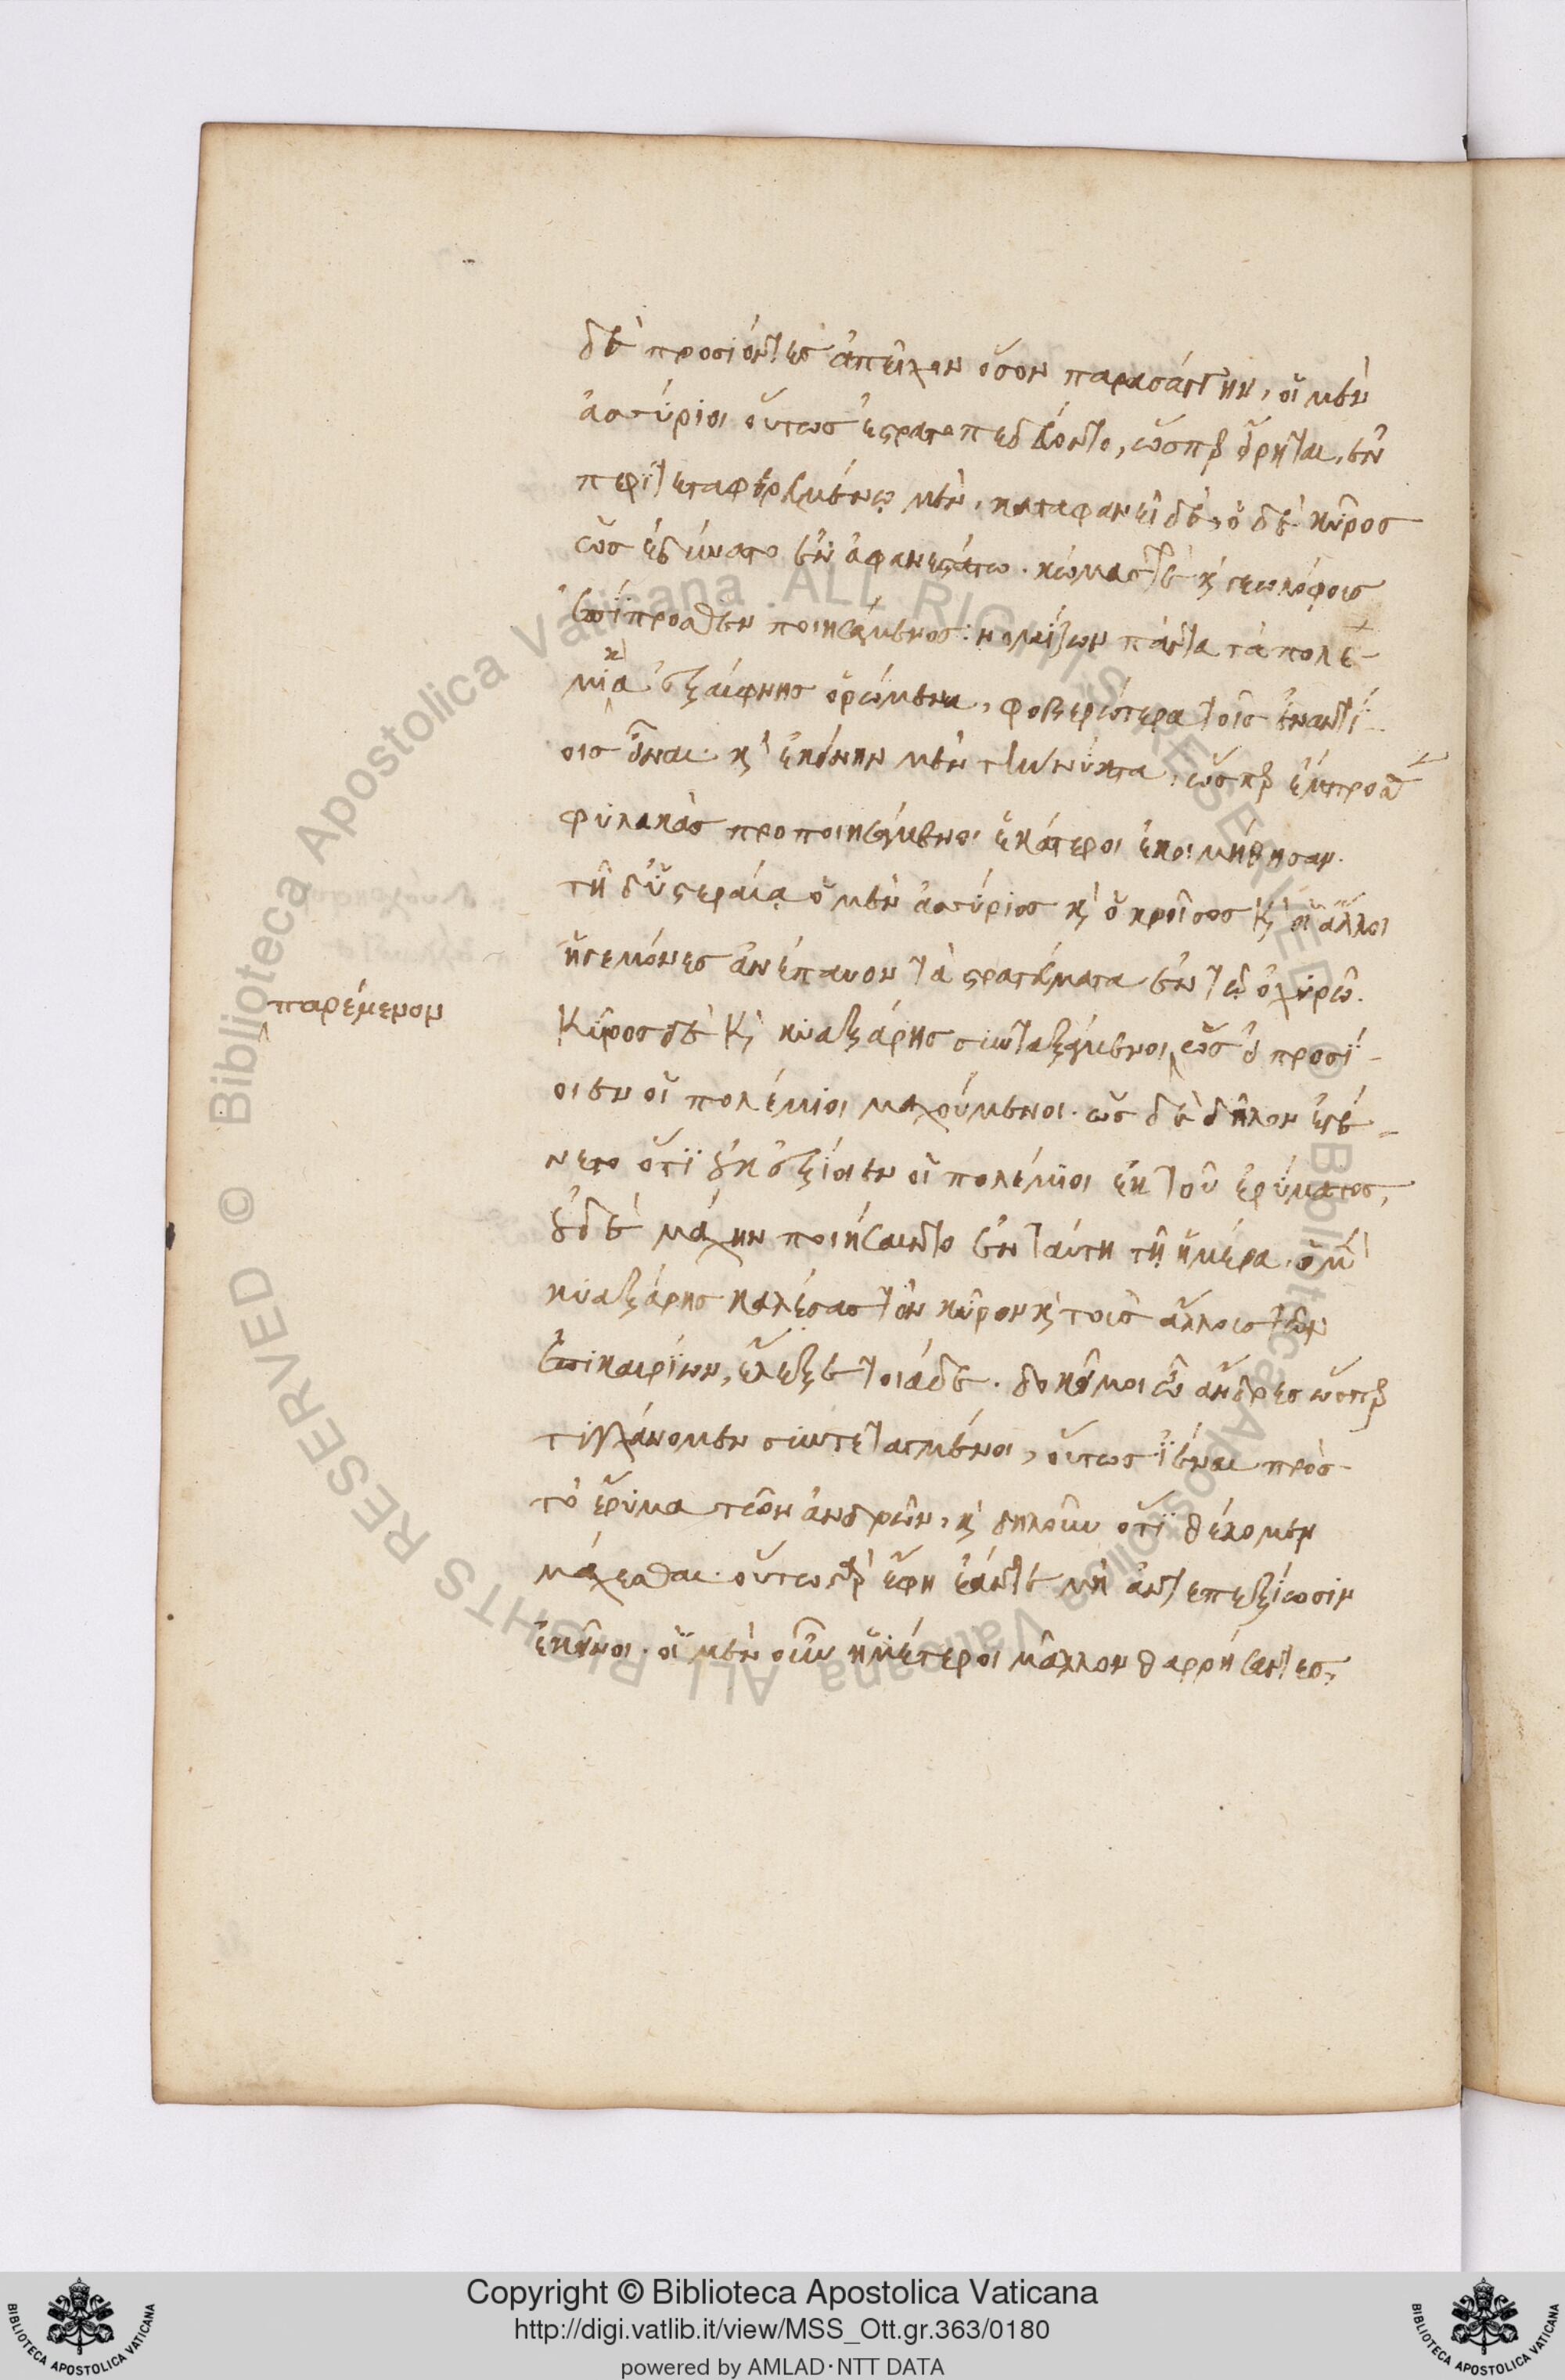 δὲ προσιόντες ἀπεῖχον ὅσον παρασάγγην, οἱ μὲν
ἀσσύριοι οὕτως ἐστρατοπεδεύοντο, ὥσπερ εἴρηται, ἐν
περιτεταφρευμένῳ μὲν, καταφανεῖ δέ, ὁ δὲ κῦρος
ὡς ἐδύνατο ἐν ἀφανεστάτω. κώμας τὲ καὶ γεωλόφους
ἐπίπροσθεν ποιησάμενος: νομίζων πάντα τὰ πολέ-
μια ἐξαίφνης ὁρώμενα, φοβερώτερα τοῖς ἐναντί-
οις εἶναι. καὶ ἐκείνην μὲν τὴν νύκτα, ὥσπερ ἔμπροσθεν
φυλακὰς προποιησάμενοι ἑκάτεροι ἐκοιμήθησαν.
τῇ δ' ὑστεραίᾳ ὁ μὲν ἀσσύριος καὶ ὁ κροῖσος καὶ οἱ ἄλλοι
ἡγεμόνες ἀνέπαυον τὰ στρατεύματα ἐν τῷ ὀχυρῷ.
παρέμενον
Κῦρος δὲ καὶ κυαξάρης συνταξάμενοι ὡς εἰ προσί-
οιεν οἱ πολέμιοι μαχούμενοι. ὡς δὲ δῆλον ἐγέ-
νετο ὅτι οὐκ ἐξίοιεν οἱ πολέμιοι ἐκ τοῦ ἐρύματος,
οὐδὲ μάχην ποιήσαιντο ἐν ταύτῃ τῇ ἡμέρᾳ. ὁ μὲν
κυαξάρης καλέσας τὸν κῦρον καὶ τοὺς ἄλλους τῶν
ἐπικαιρίων, ἔλεξε τοιάδε. δοκεῖ μοι ὦ ἄνδρες ὥσπερ
τυγχάνομεν συντεταγμένοι, οὕτως ἰέναι πρὸς
τὸ ἔρυμα τῶν ἀνδρῶν, καὶ δηλοῦν ὅτι θέλομεν
μάχεσθαι. οὕτω γὰρ ἔφη ἐάν τε μὴ ἀντεπεξίωσιν
ἐκεῖνοι. οἱ μὲν οὖν ἡμέτεροι μᾶλλον θαρρήσαντες,
Copyright © Biblioteca Apostolica Vaticana
http://digi.vatlib.it/view/MSS_Ott.gr.363/0180
powered by AMLAD·NTT DATA